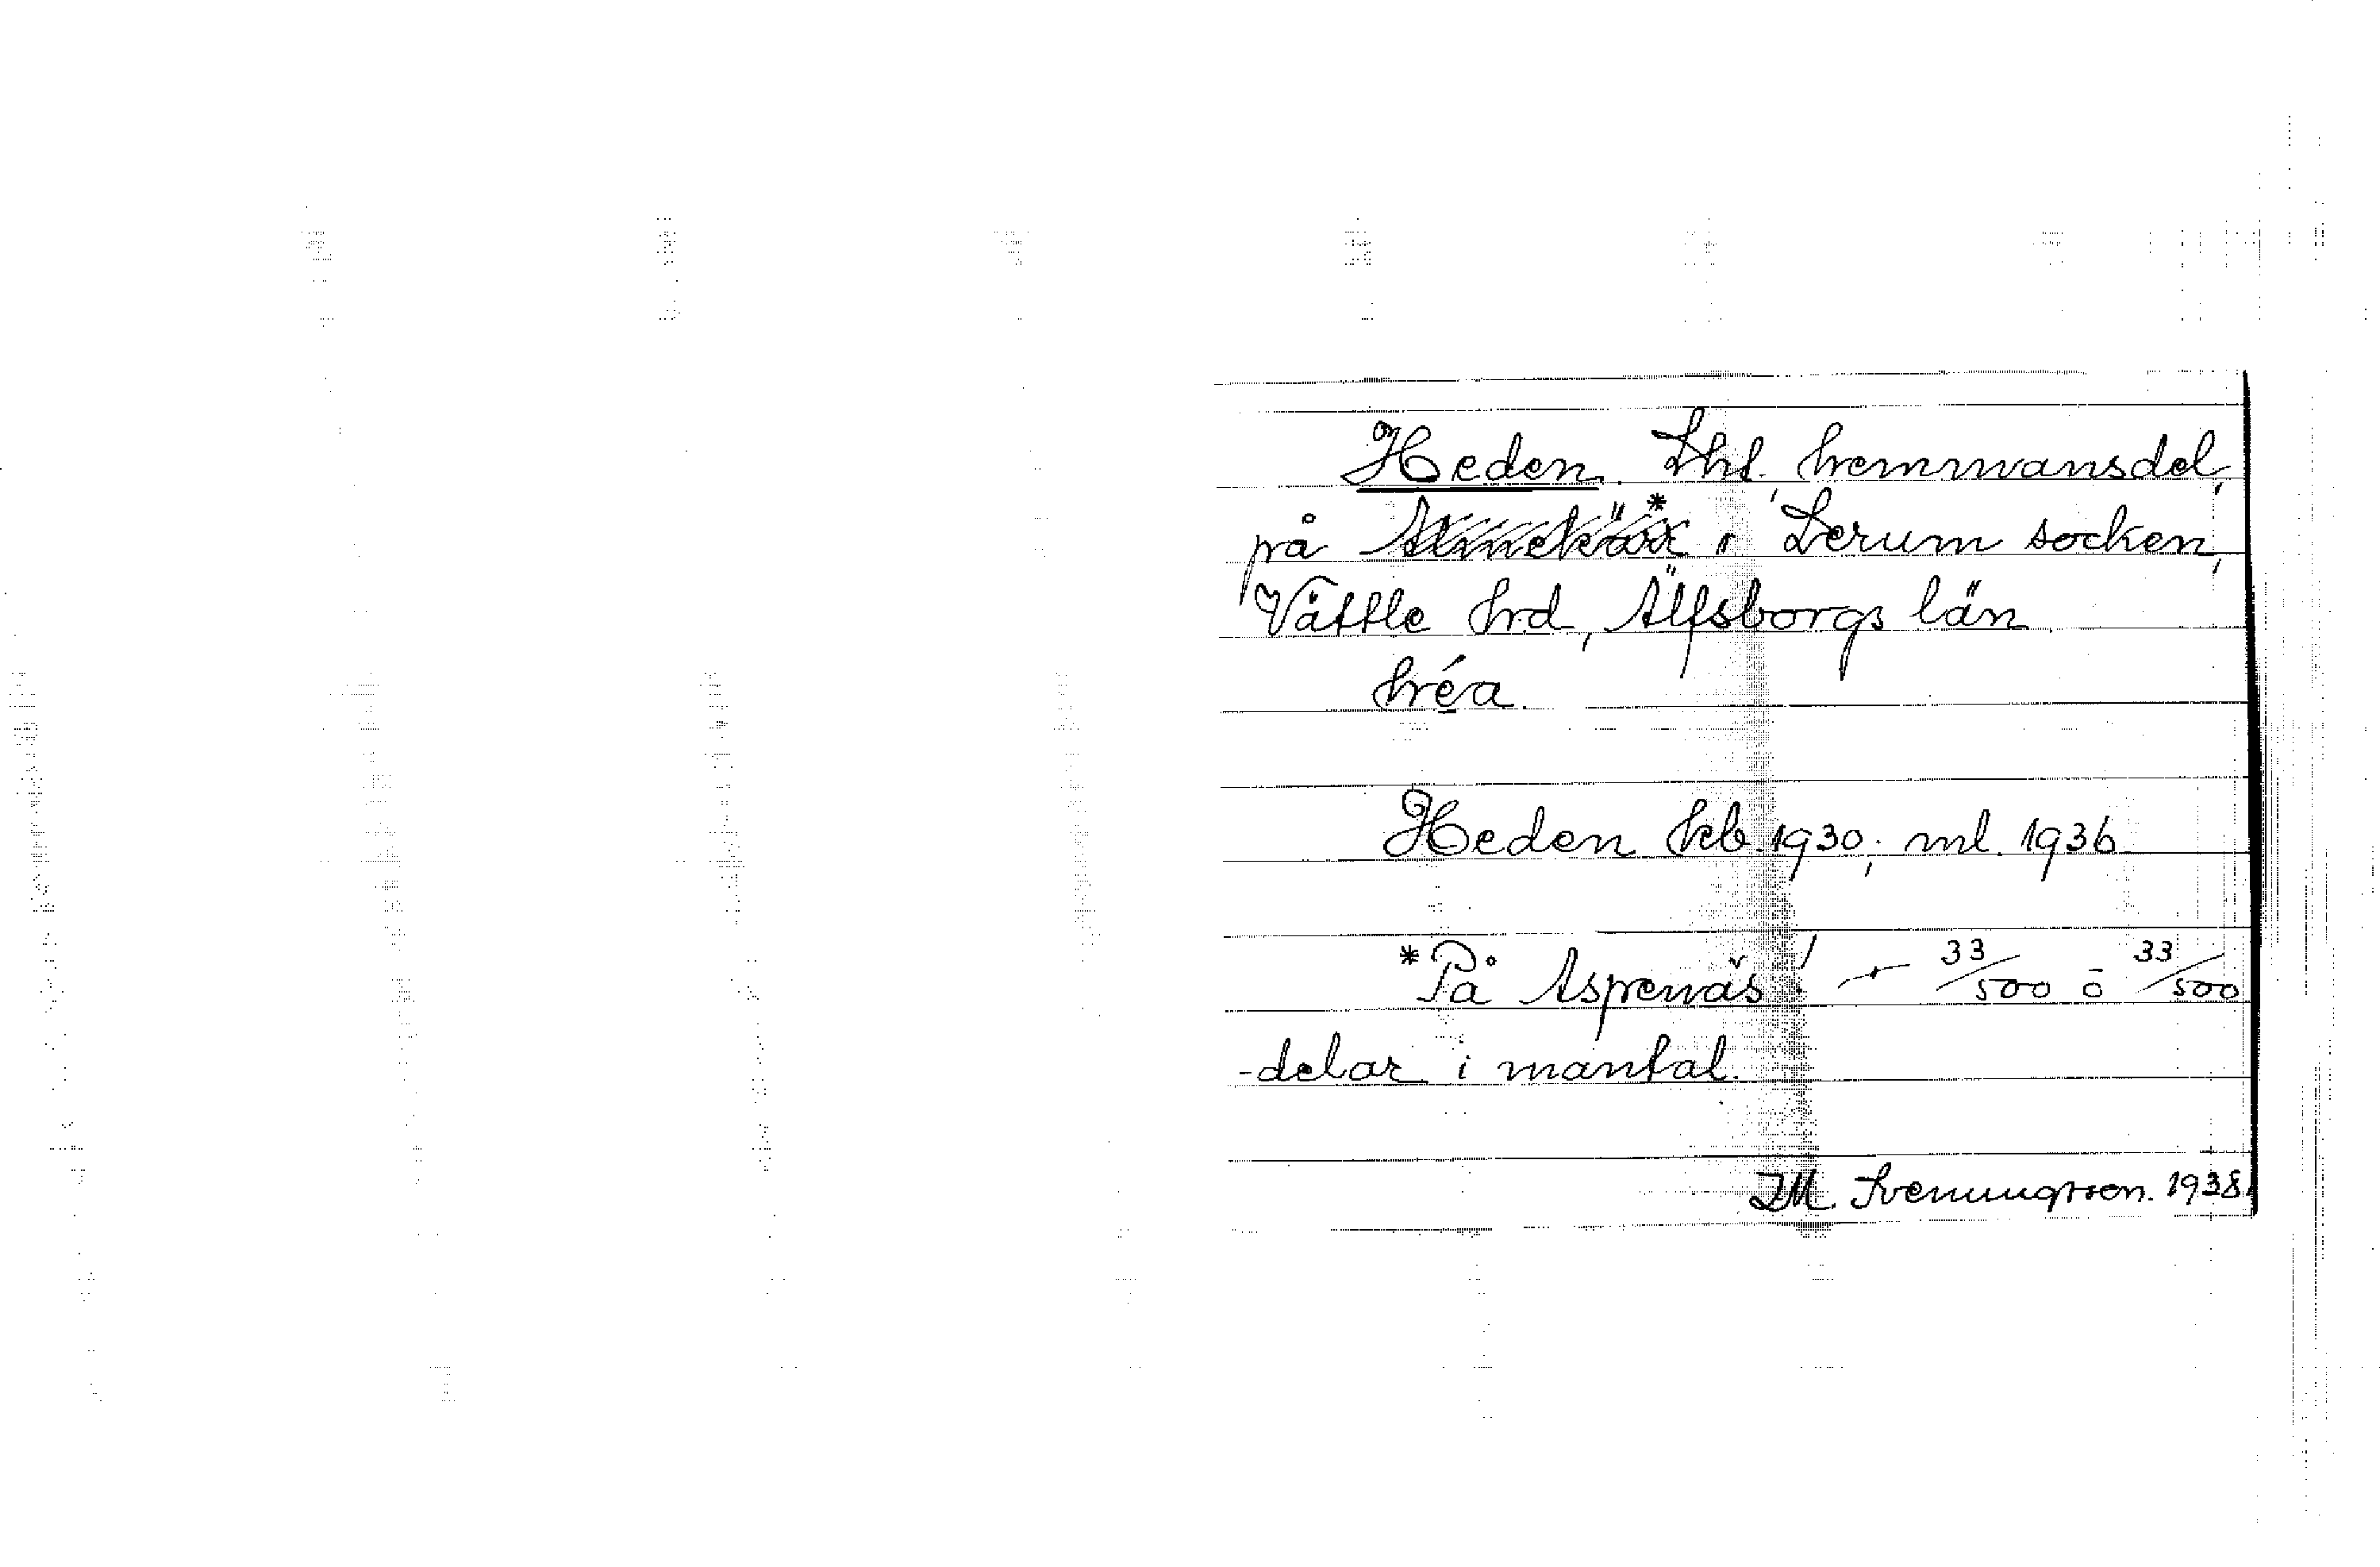 Heden. Lht. hemmansdel,
på * i Lerum socken,
Vättle hrd, Älfsborgs län.
hέa.
Heden kb. 1930; ml. 1936
*På Aspenäs! 33/500 o 33/500
-delar i mantal.
I.M. Svenungsson. 1938.